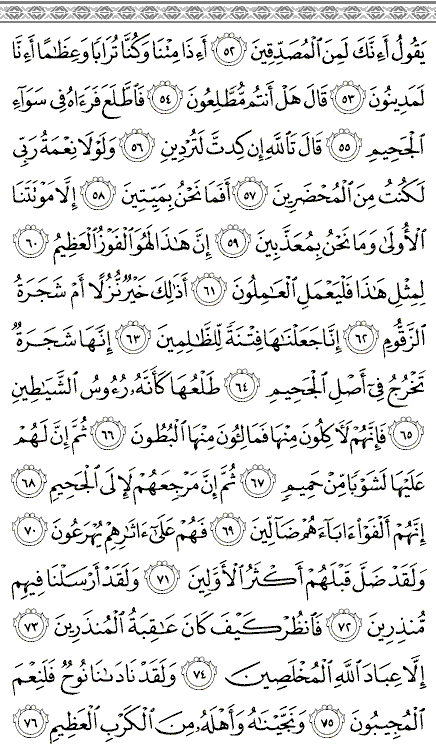 يَقُولُ أَءِنَّكَ لَمِنَ الْمُصَدِّقِينَ ٥٢ أَءِذَا مِتْنَا وَكُنَّا تُرَابًا وَعِظَامًا أَءِنَّا
لَمَدِينُونَ ٥٣ قَالَ هَلْ أَنتُم مُّطَّلِعُونَ ٥٤ فَاطَّلَعَ فَرَءَاهُ فِي سَوَاءِ
الْجَحِيمِ ٥٥ قَالَ تَاللَّهِ إِن كِدتَّ لَتُرْدِينِ ٥٦ وَلَوْلَا نِعْمَةُ رَبِّي
لَكُنتُ مِنَ الْمُحْضَرِينَ ٥٧ أَفَمَا نَحْنُ بِمَيِّتِينَ ٥٨ إِلَّا مَوْتَتَنَا
الْأُولَىٰ وَمَا نَحْنُ بِمُعَذَّبِينَ ٥٩ إِنَّ هَٰذَا لَهُوَ الْفَوْزُ الْعَظِيمُ ٦٠
لِمِثْلِ هَٰذَا فَلْيَعْمَلِ الْعَامِلُونَ ٦١ أَذَٰلِكَ خَيْرٌ نُّزُلًا أَمْ شَجَرَةُ
الزَّقُّومِ ٦٢ إِنَّا جَعَلْنَاهَا فِتْنَةً لِّلظَّالِمِينَ ٦٣ إِنَّهَا شَجَرَةٌ
تَخْرُجُ فِي أَصْلِ الْجَحِيمِ ٦٤ طَلْعُهَا كَأَنَّهُ رُءُوسُ الشَّيَاطِينِ
٦٥ فَإِنَّهُمْ لَآكِلُونَ مِنْهَا فَمَالِئُونَ مِنْهَا الْبُطُونَ ٦٦ ثُمَّ إِنَّ لَهُمْ
عَلَيْهَا لَشَوْبًا مِّنْ حَمِيمٍ ٦٧ ثُمَّ إِنَّ مَرْجِعَهُمْ لَإِلَى الْجَحِيمِ ٦٨
إِنَّهُمْ أَلْفَوْا ءَابَاءَهُمْ ضَالِّينَ ٦٩ فَهُمْ عَلَىٰ ءَاثَارِهِمْ يُهْرَعُونَ ٧٠
وَلَقَدْ ضَلَّ قَبْلَهُمْ أَكْثَرُ الْأَوَّلِينَ ٧١ وَلَقَدْ أَرْسَلْنَا فِيهِم
مُّنذِرِينَ ٧٢ فَانظُرْ كَيْفَ كَانَ عَاقِبَةُ الْمُنذَرِينَ ٧٣
إِلَّا عِبَادَ اللَّهِ الْمُخْلَصِينَ ٧٤ وَلَقَدْ نَادَانَا نُوحٌ فَلَنِعْمَ
الْمُجِيبُونَ ٧٥ وَنَجَّيْنَاهُ وَأَهْلَهُ مِنَ الْكَرْبِ الْعَظِيمِ ٧٦